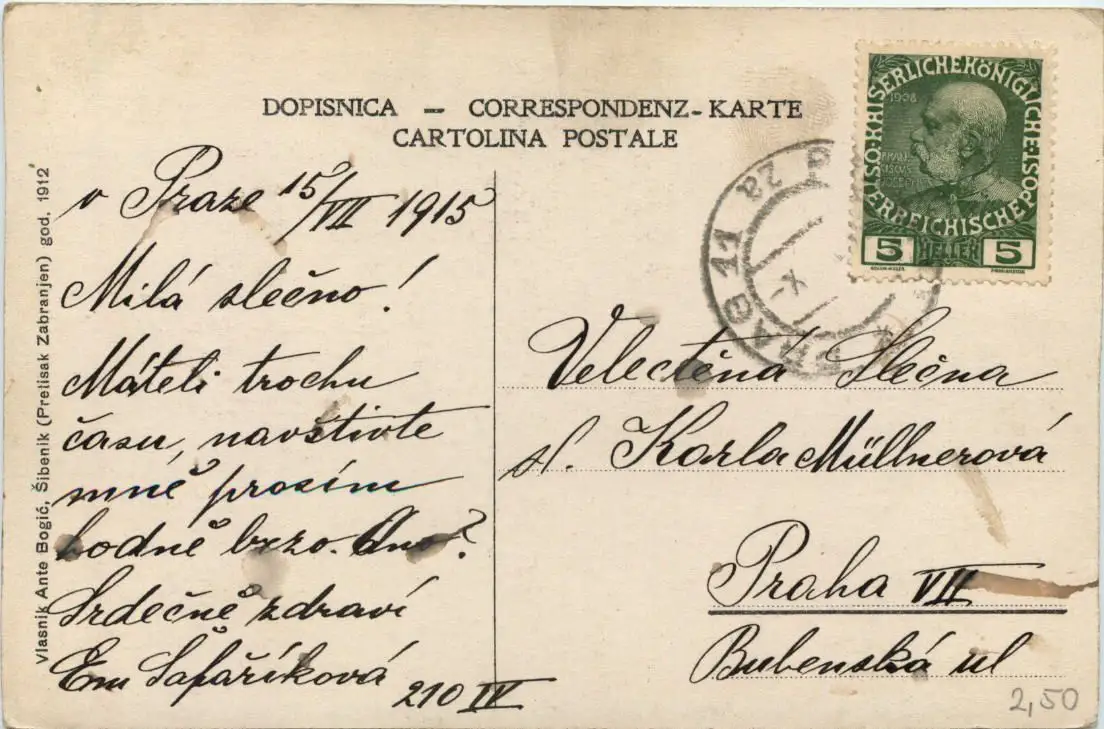 DOPISNICA — CORRESPONDENZ-KARTE
CARTOLINA POSTALE
KAISERLICHEKÖNIGLICHE ÖSTERREICHISCHE POST
1908
5 HELLER 5
PRAG 11
X
v Praze 15/VII 1915
Milá slečno!
Máteli trochu
času, navštivte
mně prosím
hodně brzo. Ano?
Srdečně zdraví
Em Šafaříková
210 IV
Velectěná Slečna
sl. Karla Müllnerová
Praha VII
Bubenská ul
2,50
Vlasnik Ante Bogić, Šibenik (Pretisak Zabranjen) god. 1912